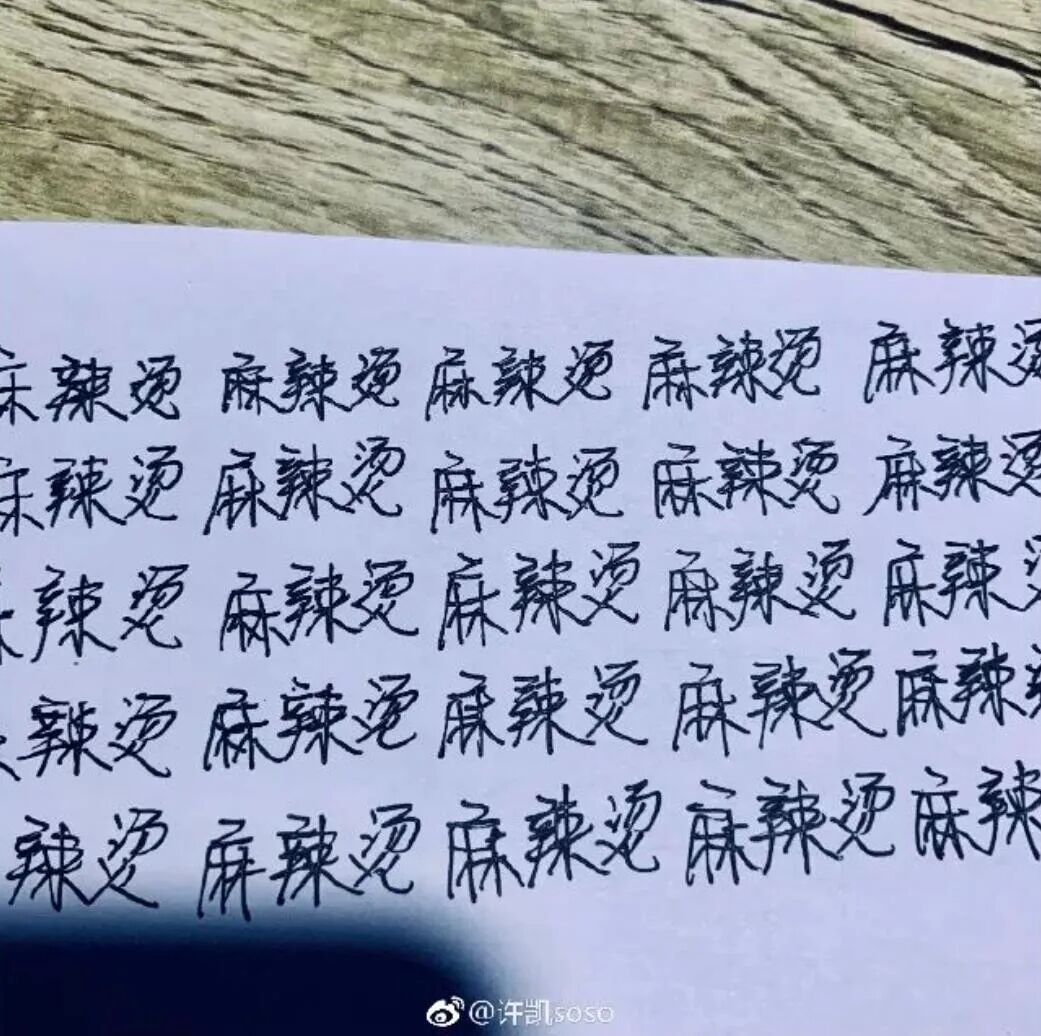 麻辣烫 麻辣烫 麻辣烫 麻辣烫 麻辣烫
麻辣烫 麻辣烫 麻辣烫 麻辣烫 麻辣烫
辣烫 麻辣烫 麻辣烫 麻辣烫 麻辣烫
辣烫 麻辣烫 麻辣烫 麻辣烫 麻辣烫
辣烫 麻辣烫 麻辣烫 麻辣烫 麻辣
@许凯soso